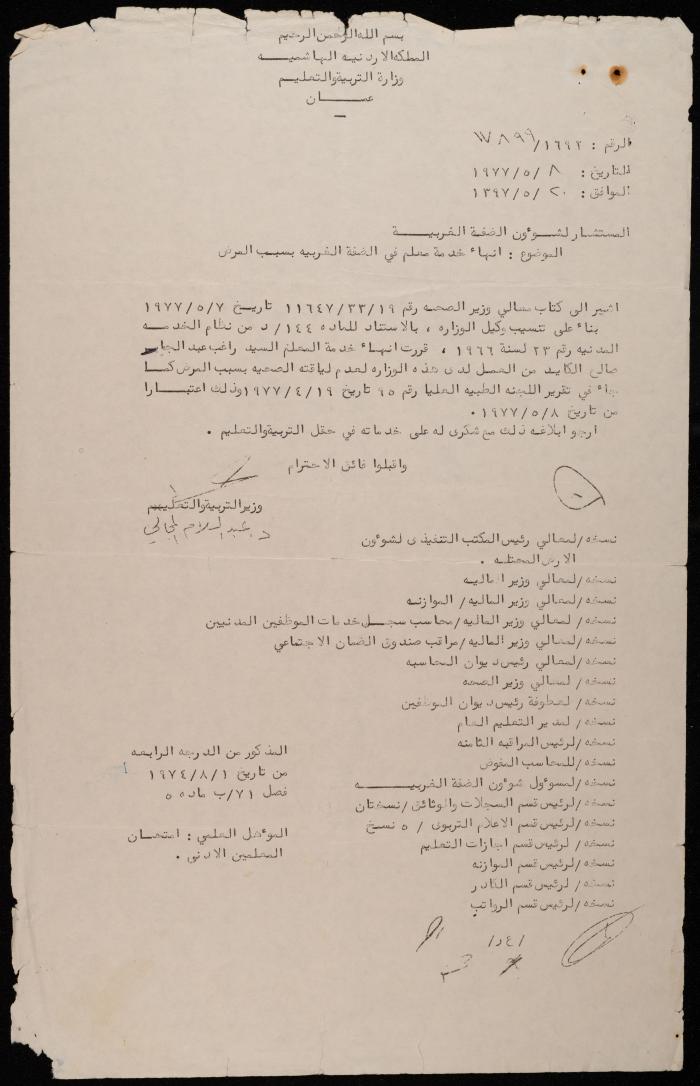 بسم الله الرحمن الرحيم
المملكه الاردنيه الهاشميـــه
وزارة التربية والتعليـم
عمـــــان
الرقم : ١٦٩٢/
التاريخ : ٨ /٥/ ١٩٧٧
الموافق : ٢٠ /٥/ ١٣٩٧
المستشار لشـوؤون الضفة الغربيـــة
الموضوع : انهاء خدمة معلم في الضفة الغربيه بسبب المرض
اشير الى كتاب معالي وزير الصحه رقم ١٩/ ٣٣/ ١١٦٤٧ تاريـخ ١٩٧٧/٥/٧
بناء على تنسيب وكيل الوزاره ، بالاستناد للماده ١٤٤/ د من نظام الخدمـــه
المدنيه رقم ٢٣ لسنة ١٩٦٦ ، قررت انهـاء خدمة المعلم السيد راغب عبد الجابر
صالح الكايد من العمل لدى هذه الوزاره لعدم لياقته الصحيه بسبب المرض كمـا
جاء في تقرير اللجنه الطبيه العليا رقم ٩٥ تاريخ ١٩٧٧/٤/١٩ وذلك اعتبـــارا
من تاريخ ١٩٧٧/٥/٨ .
ارجو ابلاغه ذلك مع شكرى له على خدماته في حقل التربية والتعليم .
واقبلوا فائق الاحترام
وزير التربية والتعليم
د. عبد السلام المجالي
نسخه/ لمعالي رئيس المكتب التنفيذى لشوؤون
الارض المحتلـه .
نسخه/ لمعالي وزير الماليه
نسخه/ لمعالي وزير الماليه/ الموازنه
نسخه/ لمعالي وزير الماليه/ محاسب سجـل خدمات الموظفين المدنيين
نسخه/ لمعالي وزير الماليه/ مراقب صندوق الضمان الاجتماعي
نسخه/ لمعالي رئيس ديوان المحاسبه
نسخه/ لمعالي وزير الصحه
نسخه/ لعطوفة رئيس ديوان الموظفين
نسخه/ لمدير التعليم العام
نسخه/ لرئيس المراقبه الثامنه
نسخه/ للمحاسب المفوض
نسخه/ لمسوؤل شوؤون الضفة الغربيـــــه
نسخه/ لرئيس قسم السجلات والوثائق/ نسختان
نسخه/ لرئيس قسم الاعلام التربوى / ٥ نسخ
نسخه/ لرئيس قسم اجازات التعليم
نسخه/ لرئيس قسم الموازنه
نسخه/ لرئيس قسم الكادر
نسخه/ لرئيس قسم الرواتب
المذكور من الدرجه الرابعه
من تاريخ ١٩٧٤/٨/١
فصل ٧١/ب ماده ٥
الموؤهل العلمي : امتحـان
المعلمين الادنى .